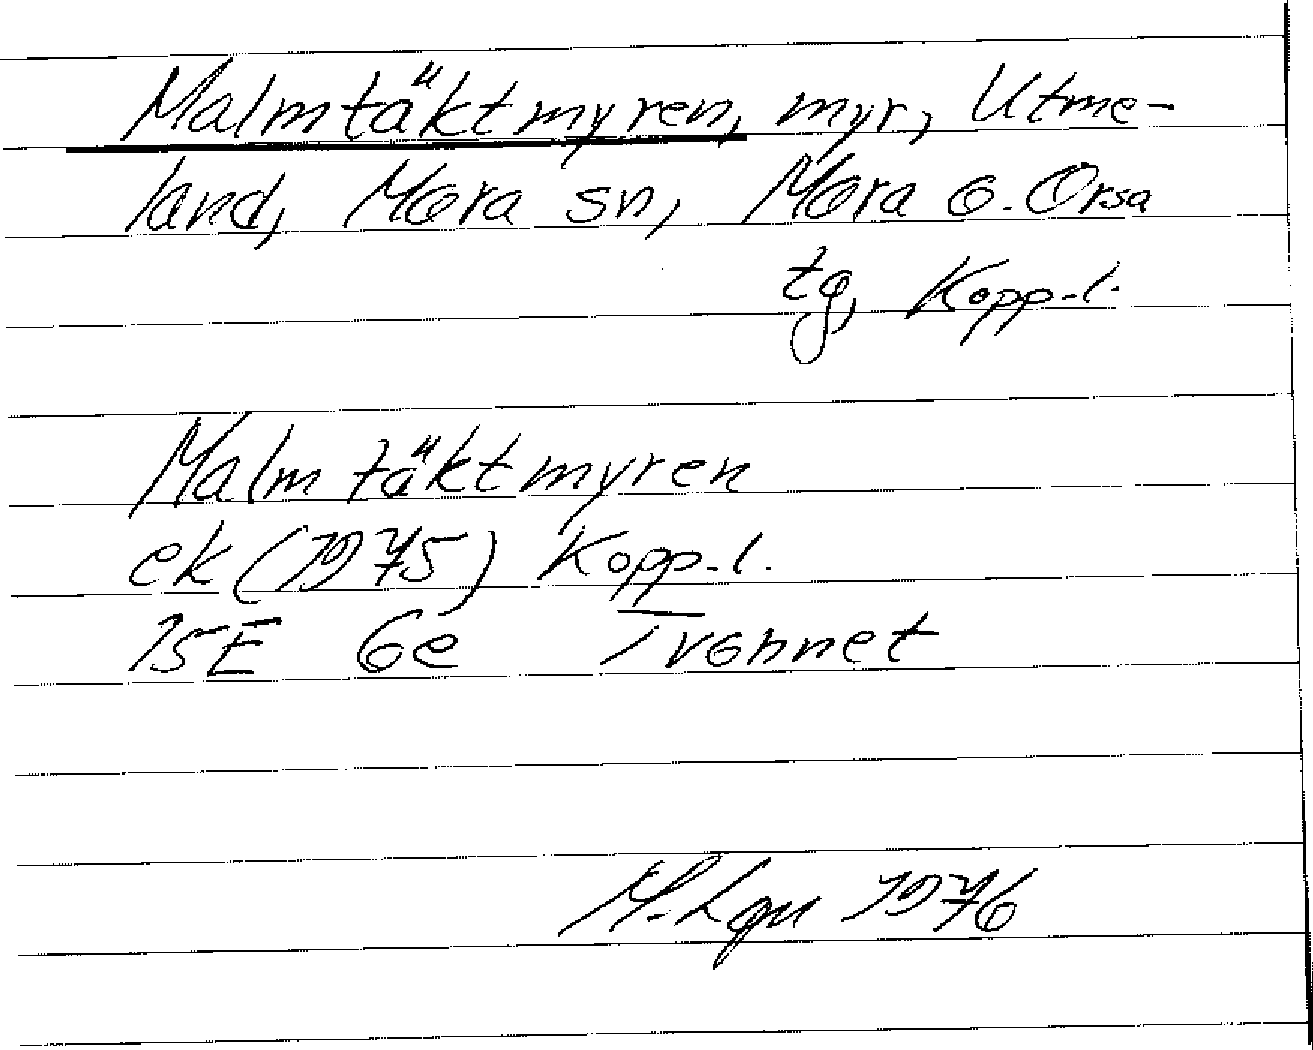 Malmtäktmyren, myr, Utme-
land, Mora sn, Mora o. Orsa
tg, Kopp.l.
Malmtäktmyren
ek (1975) Kopp.l.
15E 6e Ivonnet
M. Lgn 1976